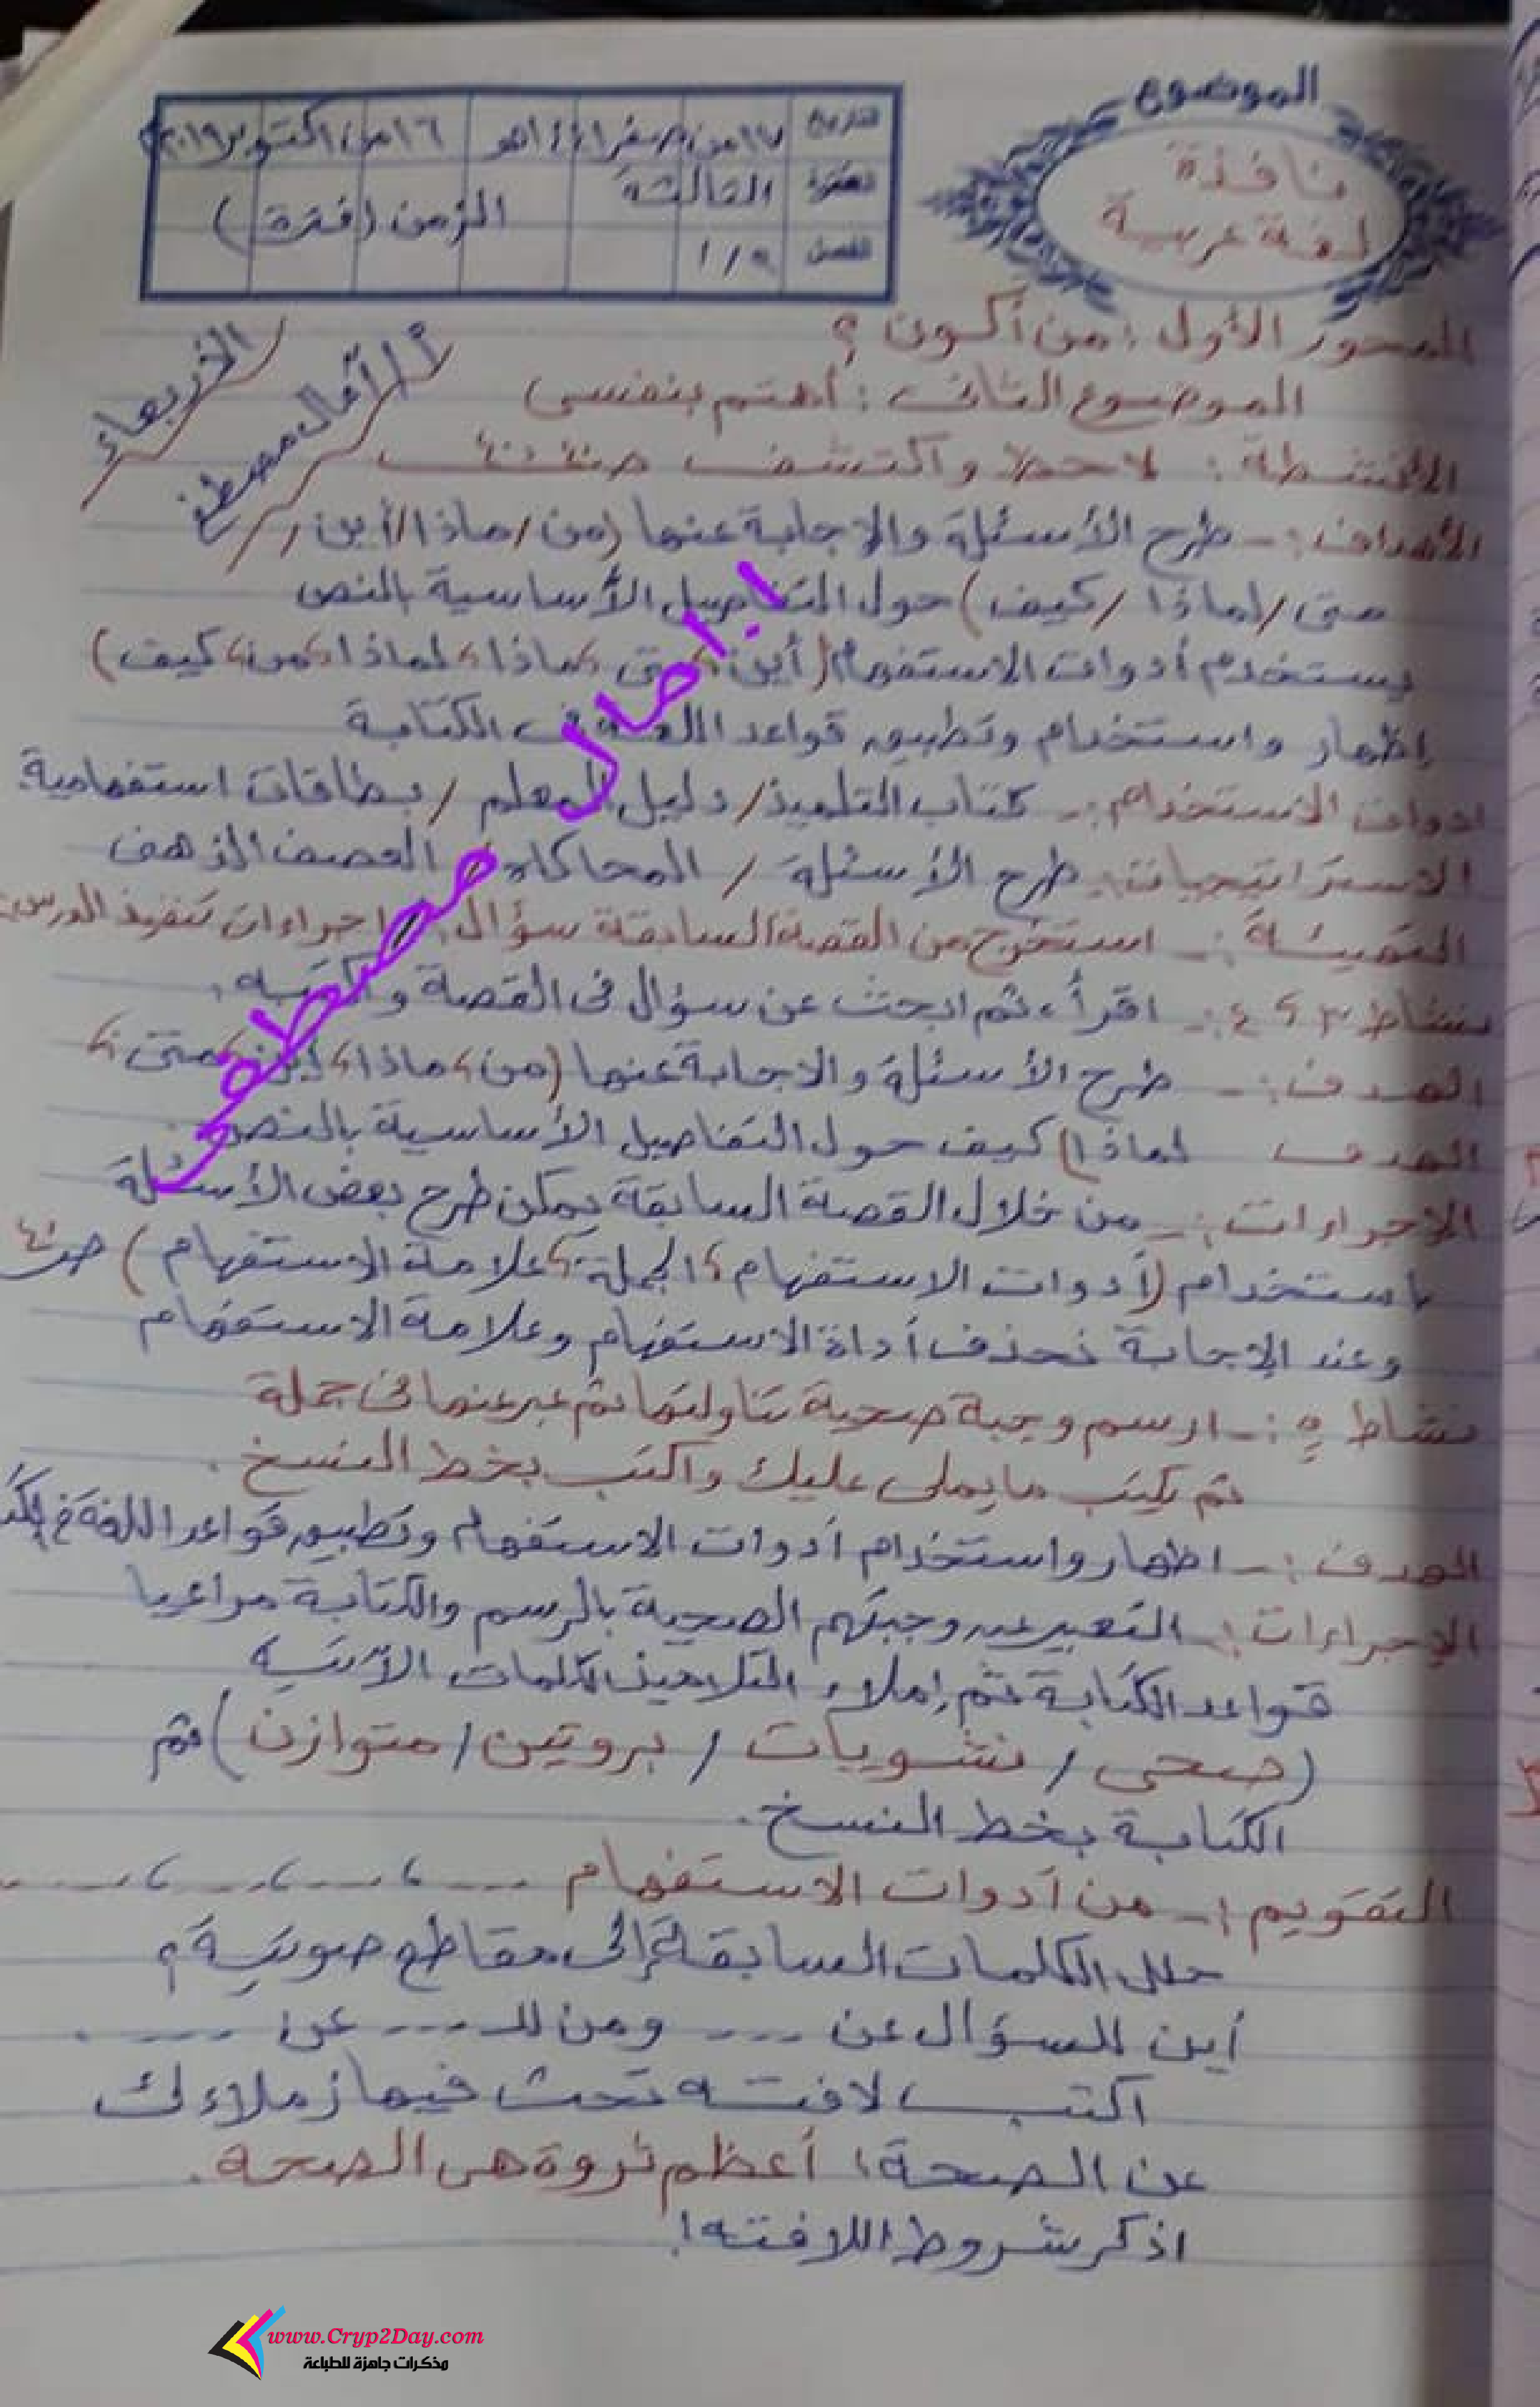 الموضوع
نافذة
لغة عربية
التاريخ ١٧ من صفر ١٤٤١ هـ ١٦ من أكتوبر ٢٠١٩
الفترة الثالثة الزمن (فترة)
الفصل ١/٢
المحور الأول : من أكون ؟
الأربعاء
أ/ آمال مصطفى
الموضوع الثاني : أهتم بنفسي
الأنشطة : لاحظ واكتشف
الأهداف :- طرح الأسئلة والإجابة عنها (من / ماذا / أين /
متى / لماذا / كيف) حول التفاصيل الأساسية بالنص
يستخدم أدوات الاستفهام (أين، متى، ماذا، لماذا، من، كيف)
إظهار واستخدام وتطبيق قواعد اللغة في الكتابة
ادوات الاستخدام :- كتاب التلميذ / دليل المعلم / بطاقات استفهامية
الاستراتيجيات :- طرح الأسئلة / المحاكاة / العصف الذهني
التهيئة :- استخرج من القصة السابقة سؤال. اجراءات تنفيذ الدرس:
نشاط ٣ ، ٤ :- اقرأ، ثم ابحث عن سؤال في القصة واكتبه.
الهدف :- طرح الأسئلة والاجابة عنها (من، ماذا، أين، متى،
الهدف لماذا) كيف حول التفاصيل الأساسية بالنص.
الاجراءات :- من خلال القصة السابقة يمكن طرح بعض الأسئلة
باستخدام (أدوات الاستفهام، الجملة، علامة الاستفهام)
وعند الإجابة نحذف أداة الاستفهام وعلامة الاستفهام
نشاط ٥ :- ارسم وجبة صحية تناولتها ثم عبر عنها في جملة
ثم يكتب ما يملى عليك واكتب بخط النسخ.
الهدف :- اظهار واستخدام أدوات الاستفهام وتطبيق قواعد اللغة في
الإجراءات :- التعبير عن وجبتهم الصحية بالرسم والكتابة مراعيا
قواعد الكتابة ثم إملاء التلاميذ الكلمات الآتية
(صحى / نشويات / بروتين / متوازن) ثم
الكتابة بخط النسخ.
التقويم :- من أدوات الاستفهام ...، ...، ...، ...
حلل الكلمات السابقة إلى مقاطع صوتية؟
أين للسؤال عن .... ومن للـ .... عن .....
اكتب لافته تحث فيها زملاءك
عن الصحة؛ أعظم ثروة هى الصحة.
اذكر شروط اللافته!
ا/ امال مصطفى
www.Cryp2Day.com
مذكرات جاهزة للطباعة